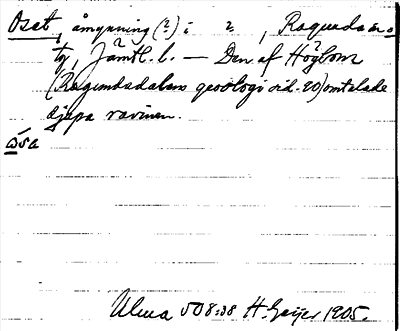 Oset, åmynning (?) i ?, Ragunda so
ty, Jämtl. l. — Den af Högbom
(Ragundadalens geologi sid. 20) omtalade
djupa ravinen.
ò̤sa
Ulma 508:38 H. Geijer 1905.